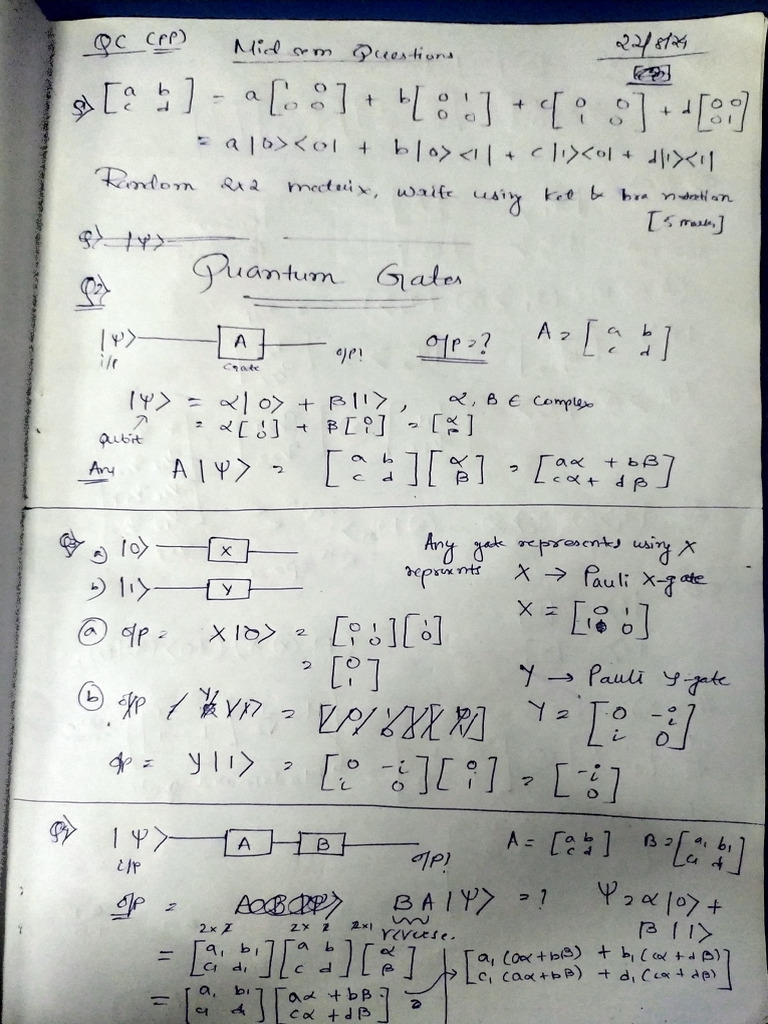 QC (PP) Mid sem Questions 22/8/24
Q1> [a b; c d] = a[1 0; 0 0] + b[0 1; 0 0] + c[0 0; 1 0] + d[0 0; 0 1]
= a|0><0| + b|0><1| + c|1><0| + d|1><1|
Random 2x2 matrix, write using Ket & bra notation
[5 marks]
Q> |Ψ>
Quantum Gates
Q2>
|Ψ> A o/p! o/p=? A = [a b; c d]
i/p Gate
|Ψ> = α|0> + β|1>, α, β ∈ Complex
qubit = α[1; 0] + β[0; 1] = [α; β]
Ans A|Ψ> = [a b; c d][α; β] = [aα + bβ; cα + dβ]
Q3> a) |0> X Any gate represents using X
represents X → Pauli X-gate
b) |1> Y
X = [0 1; 1 0]
(a) o/p = X|0> = [0 1; 1 0][1; 0]
= [0; 1]
Y → Pauli Y-gate
(b) o/p
Y = [0 -i; i 0]
o/p = Y|1> = [0 -i; i 0][0; 1] = [-i; 0]
Q4> |Ψ> A B o/p! A = [a b; c d] B = [a₁ b₁; c₁ d]
i/p
o/p = BA|Ψ> = ? Ψ = α|0> +
β|1>
2x2 2x2 2x1 reverse.
= [a₁ b₁; c₁ d₁][a b; c d][α; β]
= [a₁ b₁; c₁ d₁][aα + bβ; cα + dβ] = [a₁(aα+bβ) + b₁(cα+dβ); c₁(aα+bβ) + d₁(cα+dβ)]